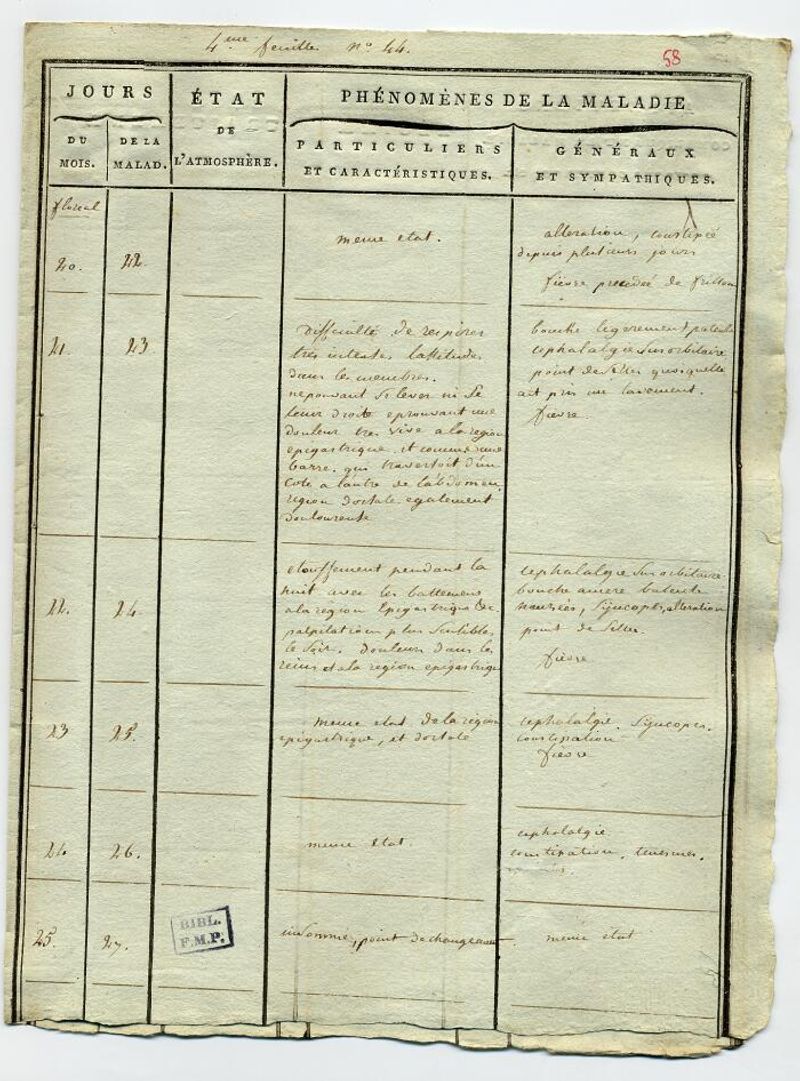 4me feuille No 44.
58
JOURS
DU
MOIS.
DE LA
MALAD.
ÉTAT
DE
L'ATMOSPHÈRE.
PHÉNOMÈNES DE LA MALADIE
PARTICULIERS
ET CARACTÉRISTIQUES.
GÉNÉRAUX
ET SYMPATHIQUES.
floreal
20.
22.
meme etat.
alteration, constipé
depuis plusieurs jours
fievre precedée de frisson
21.
23
difficulté de respirer
tres intense, lassitudes
dans les membres.
ne pouvant se lever ni se
tenir droite eprouvant une
douleur tres vive a la region
epigastrique et comme une
barre qui traversoit d'un
coté a l'autre de l'abdomen,
region dorsale egalement
douloureuse
bouche legerement pateuse
cephalalgie susorbitaire
point de selles quoiquelle
ait pris un lavement.
fievre.
22.
24
etouffement pendant la
nuit avec les battemens
a la region epigastrique
palpitations plus sensibles
le soir. douleurs dans les
reins et a la region epigastrique
cephalalgie susorbitaire
bouche amere
nausées, syncopes, alteration
point de selles.
fievre
23
25.
meme etat de la région
epigastrique, et dorsale
cephalalgie. syncopes.
constipation
fievre
24
26.
meme etat.
cephalalgie
constipation, tenesmes.
25.
27.
BIBL.
F.M.P.
insomnie, point de changement
meme etat